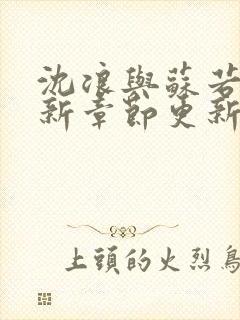 沈浪與蘇若
新章節更新
上頭的火烈鳥